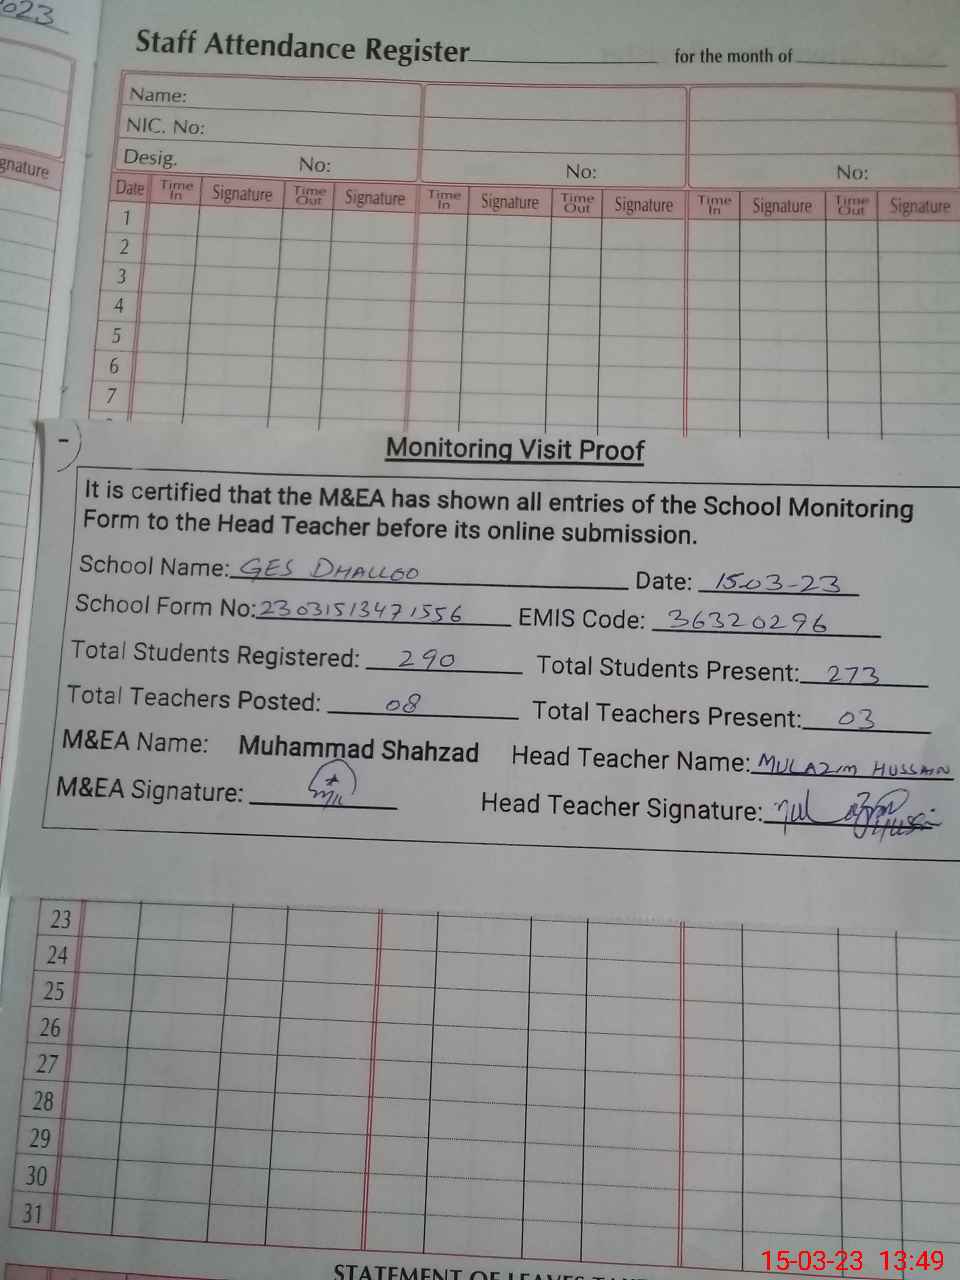 2023
Staff Attendance Register for the month of
Name:
NIC. No:
Desig. No: No: No:
gnature
Date Time In Signature Time Out Signature Time In Signature Time Out Signature Time In Signature Time Out Signature
1
2
3
4
5
6
7
Monitoring Visit Proof
It is certified that the M&EA has shown all entries of the School Monitoring
Form to the Head Teacher before its online submission.
School Name: GES DHALLOO Date: 15-03-23
School Form No: 23031513471556 EMIS Code: 36320296
Total Students Registered: 290 Total Students Present: 273
Total Teachers Posted: 08 Total Teachers Present: 03
M&EA Name: Muhammad Shahzad Head Teacher Name: MULAZIM HUSSAIN
M&EA Signature: Head Teacher Signature:
23
24
25
26
27
28
29
30
31
STATEMENT OF LEAVES
15-03-23 13:49